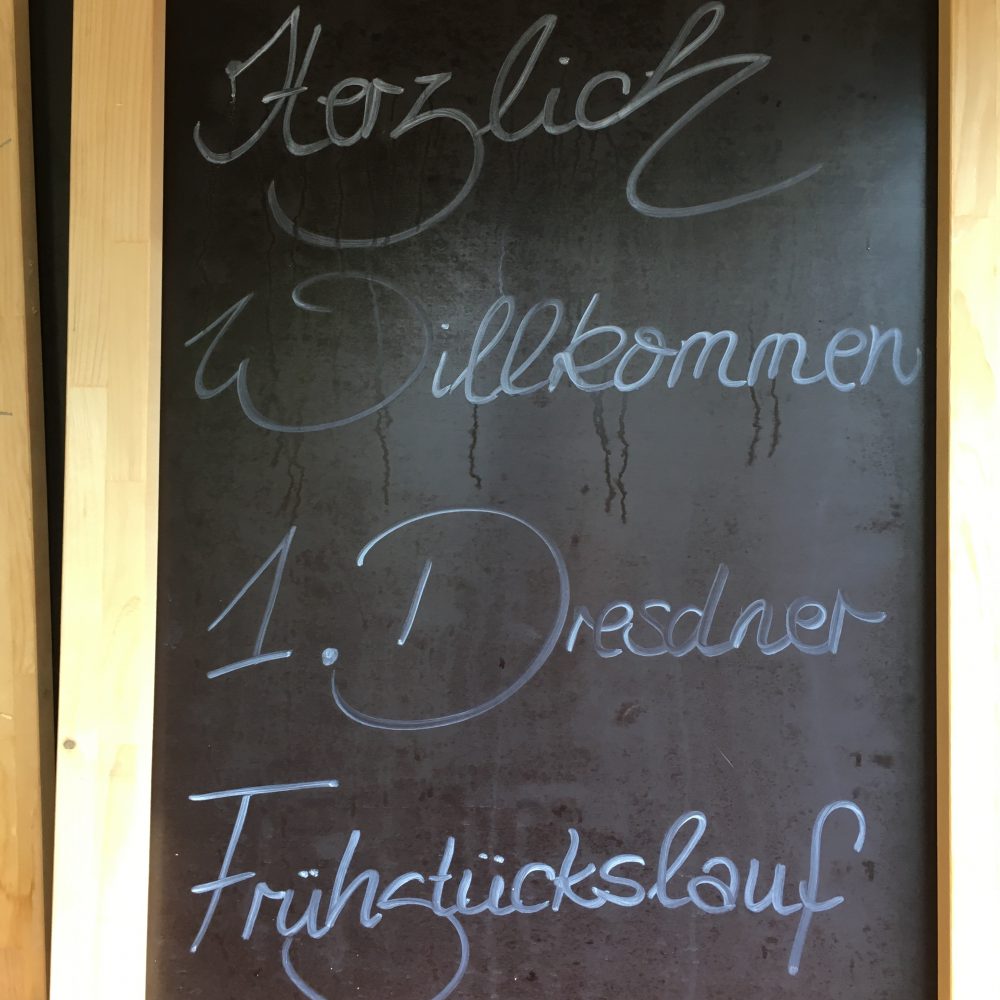 Herzlich
Willkommen
1. Dresdner
Frühstückslauf